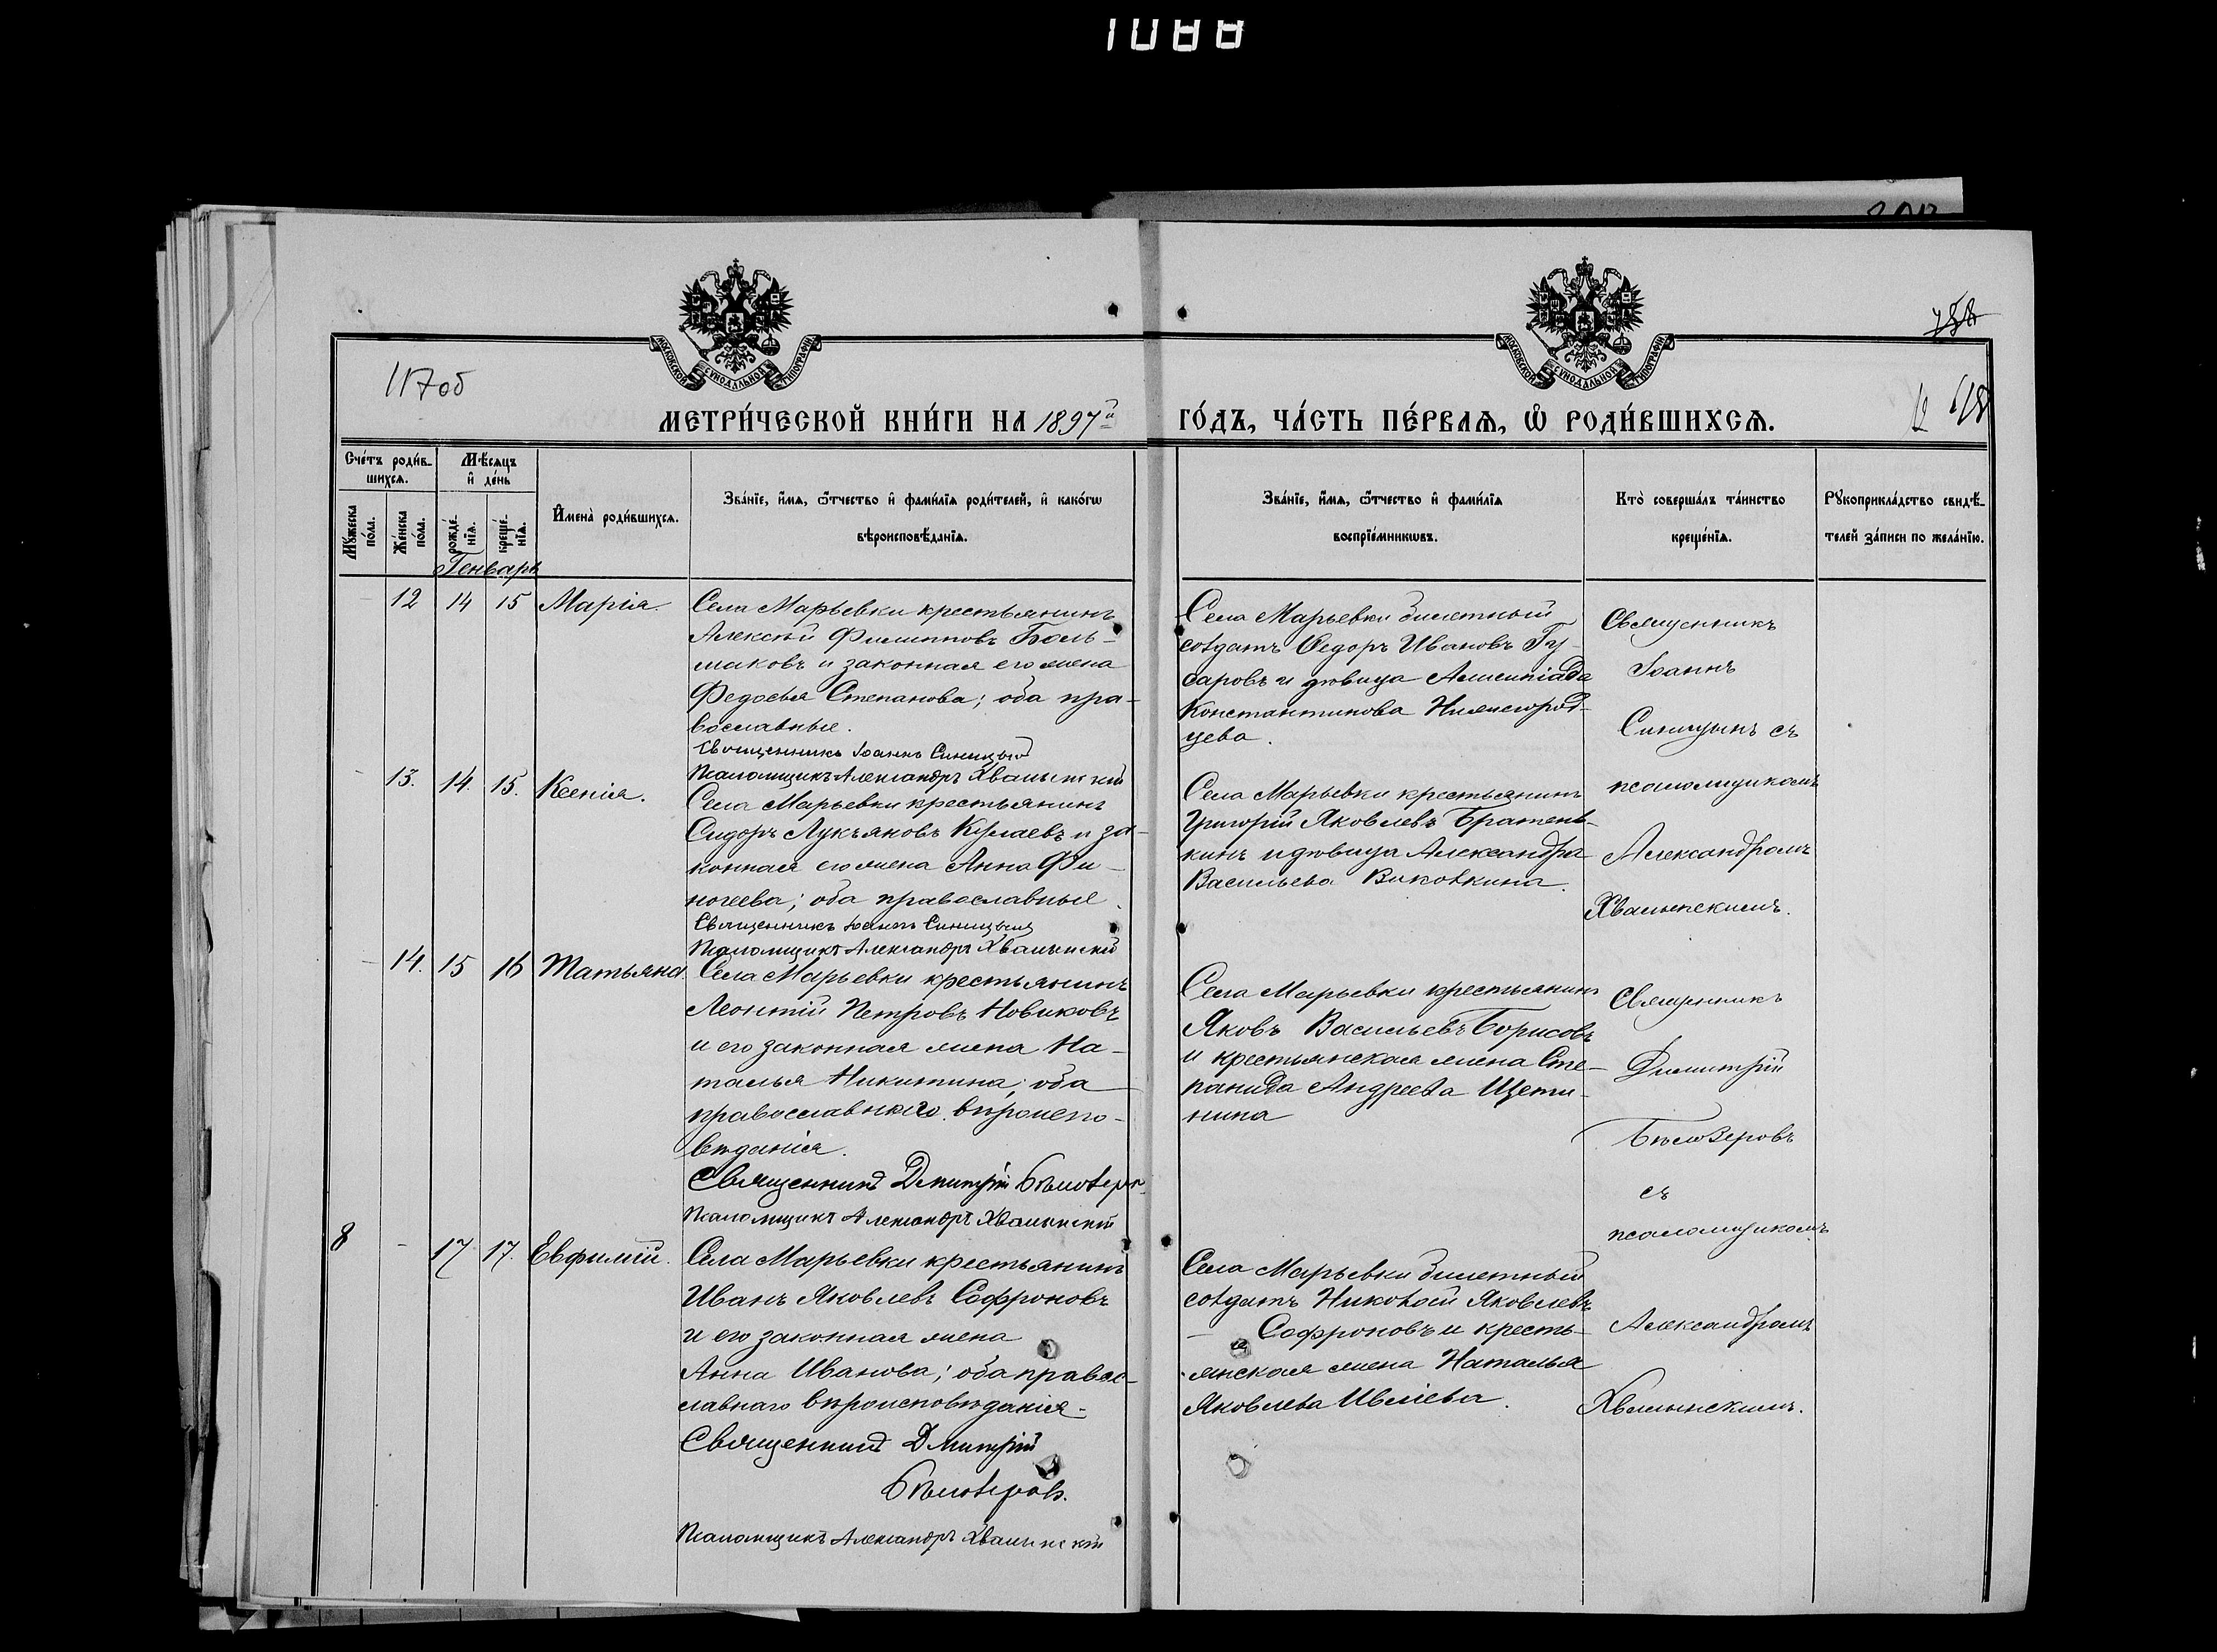 1088
117об
МОСКОВСКОЙ СѴНОДАЛЬНОЙ ТИПОГРАФІИ
МОСКОВСКОЙ СѴНОДАЛЬНОЙ ТИПОГРАФІИ
МЕТРИ́ЧЕСКОЙ КНИ́ГИ НА 1897й ГО́ДЪ, ЧА́СТЬ ПЕ́РВАЯ, Ѿ РОДИ́ВШИХСЯ.
Сче́тъ роди́в-
шихся.
Мѣ́сяцъ
и҆ де́нь
Мꙋ́жеска
по́ла.
Же́нска
по́ла.
рожде́-
нїя.
креще́-
нїя.
И҆мена̀ роди́вшихся.
Зва́нїе, и҆́мя, ѻ҆́тчество и҆ фами́лїя роди́телей, и҆ како́гѡ
вѣроисповѣ́данїя.
Зва́нїе, и҆́мя, ѻ҆́тчество и҆ фами́лїя
воспрїе́мникѡвъ.
Кто̀ соверша́лъ та́инство
креще́нїя.
Рꙋкоприкла́дство свидѣ́-
телей за́писи по жела́нїю.
Генварь
- 12 14 15 Марія.
Села Марьевки крестьянинъ
Алексѣй Филипповъ Боль-
шаковъ и законная его жена
Федосья Степанова; оба пра-
вославные.
Священникъ Іоаннъ Синицын
Псаломщикъ Александръ Хвалынскій
Села Марьевки билетный
солдатъ Ѳедоръ Ивановъ Гу-
саровъ и дѣвица Алимпіада
Константинова Нижегород-
цева.
Священникъ
Іоаннъ
Синицынъ съ
псаломщикомъ
Александромъ
Хвалынскимъ.
- 13. 14. 15. Ксенія.
Села Марьевки крестьянинъ
Сидоръ Лукьяновъ Кулаевъ и за-
конная его жена Анна Фи-
ногеева; оба православные.
Священникъ Іоаннъ Синицынъ
Псаломщикъ Александръ Хвалынскій
Села Марьевки крестьянинъ
Григорій Яковлевъ Братень-
кинъ и дѣвица Александра
Васильева Виковкина.
- 14. 15 16 Татьяна.
Села Марьевки крестьянинъ
Леонтій Петровъ Новиковъ
и его законная жена На-
талья Никитина; оба
православнаго вѣроиспо-
вѣданія.
Священникъ Дмитрій Бѣлозеровъ
Псаломщикъ Александръ Хвалынскій
Села Марьевки крестьянинъ
Яковъ Васильевъ Борисовъ
и крестьянская жена Сте-
панида Андреева Щети-
нина
Священникъ
Димитрій
Бѣлозеровъ
съ
псаломщикомъ
Александромъ
Хвалынскимъ.
8 - 17 17. Евфимій.
Села Марьевки крестьянинъ
Иванъ Яковлевъ Софроновъ
и его законная жена
Анна Иванова; оба правос-
лавнаго вѣроисповѣданія.
Священникъ Дмитрій
Бѣлозеровъ.
Псаломщикъ Александръ Хвалынскій
Села Марьевки билетный
солдатъ Николай Яковлевъ
Софроновъ и кресть-
янская жена Наталья
Яковлева Ивліева.